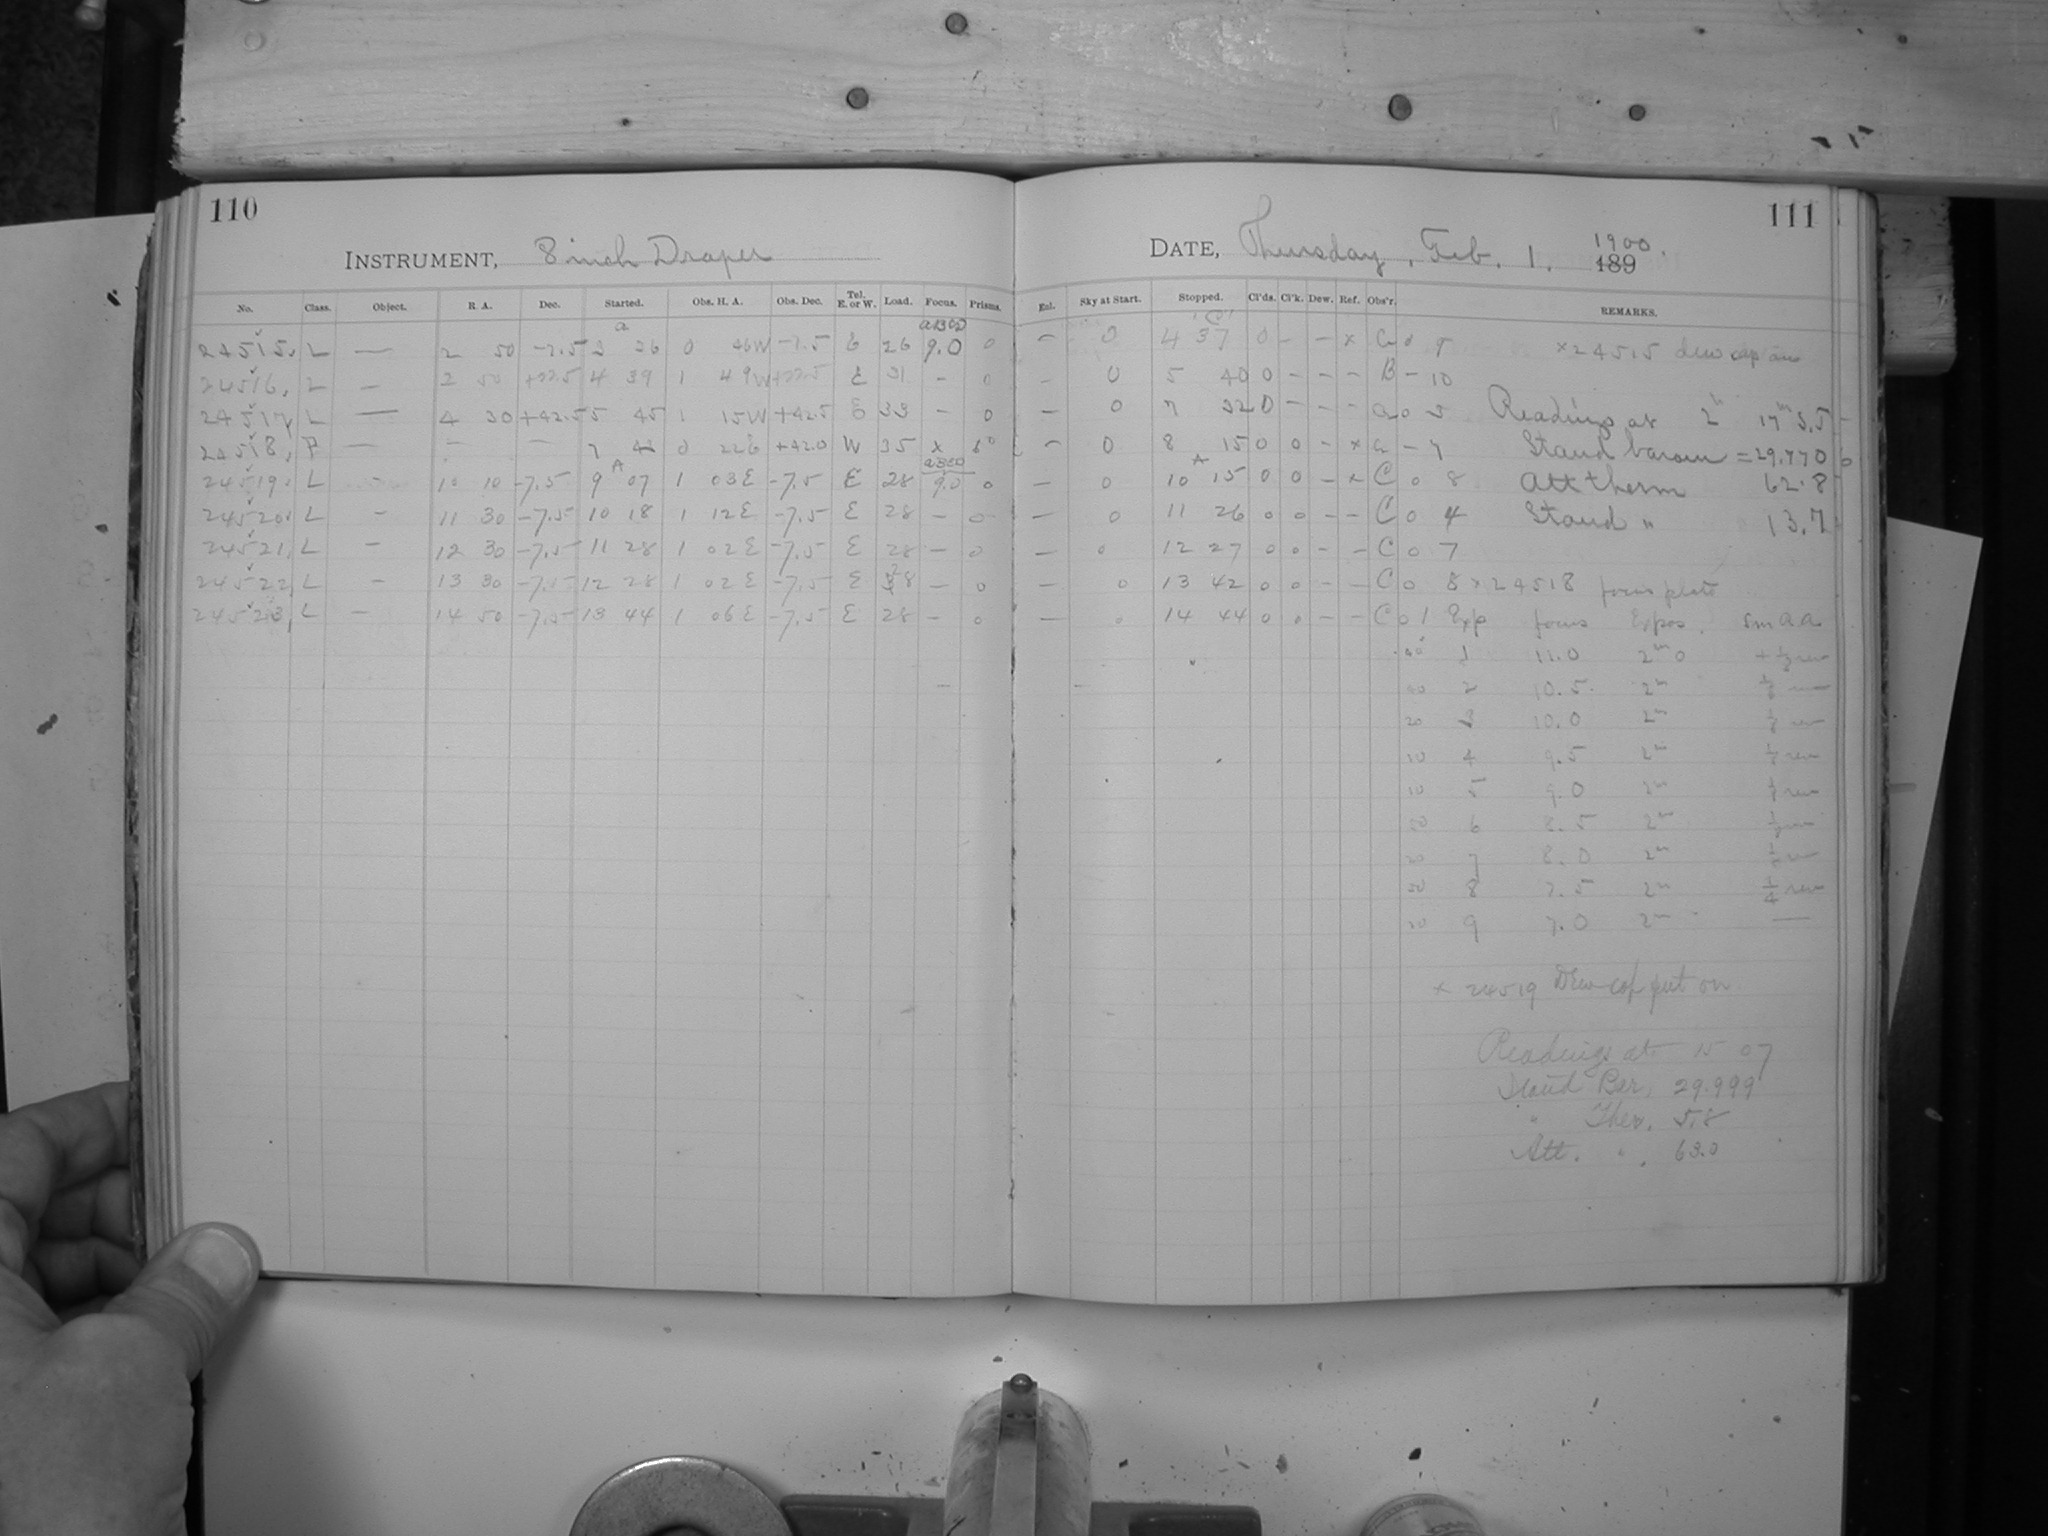 110
INSTRUMENT, 8 inch Draper
No. Class. Object. R. A. Dec. Started. Obs. H. A. Obs. Dec. Tel. E. or W. Load. Focus. Prisms.
24515. L — 2 50 -7.5 3 36 0 46W -7.5 E 26 9.0 0
24516. L — 2 50 +22.5 4 39 1 49W +22.5 E 31 - 0
24517. L — 4 30 +42.5 5 45 1 15W +42.5 E 33 - 0
24518. P — — — 7 0 22E +42.0 W 35 x
24519. L - 10 10 -7.5 9 07 1 03E -7.5 E 28 9.0 0
24520. L - 11 30 -7.5 10 18 1 12E -7.5 E 28 - 0
24521. L - 12 30 -7.5 11 28 1 02E -7.5 E 28 - 0
24522. L - 13 30 -7.5 12 28 1 02E -7.5 E 28 - 0
24523. L - 14 50 -7.5 13 44 1 06E -7.5 E 28 - 0
111
DATE, Thursday, Feb. 1. 1900. 189
Enl. Sky at Start. Stopped. Cl'ds. Cl'k. Dew. Ref. Obs'r. REMARKS.
- 0 4 37 0 - - x a 0 9 x24515 dew cap on
- 0 5 40 0 - - - B - 10
- 0 7 32 0 - - - a 0 3 Readings at 2h 17m 3.5
- 0 8 15 0 0 - x a - 7 Stand barom = 29.770
- 0 10 15 0 0 - x C 0 8 Att therm 62.8
- 0 11 26 0 0 - - C 0 4 Stand " 13.7
- 0 12 27 0 0 - - C 0 7
- 0 13 42 0 0 - - C 0 8 x24518 focus plate
- 0 14 44 0 0 - - C 0 1 Exp focus Expos.
1 11.0 2m
2 10.5 2m
20 3 10.0 2m
10 4 9.5 2m
10 5 9.0 2m
6 8.5 2m
20 7 8.0 2m
8 7.5 2m 1/4 rev
9 7.0 2m —
x 24519 Dew cap put on
Readings at 15 07
Stand Bar. 29.999
" Ther. 5.8
Att. " . 63.0